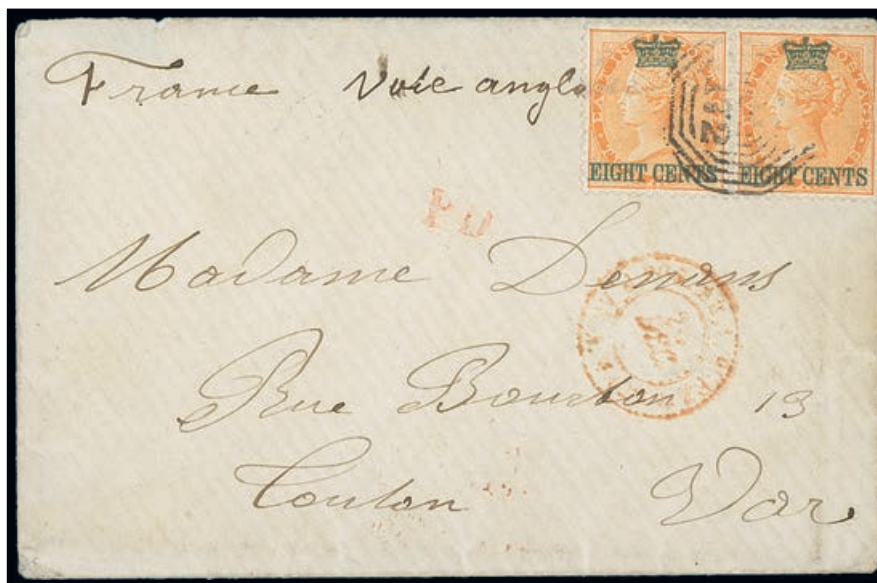 France Voie angl
EIGHT CENTS EIGHT CENTS
P.D.
Madame Denans
Rue Bourbon 13
Toulon Var